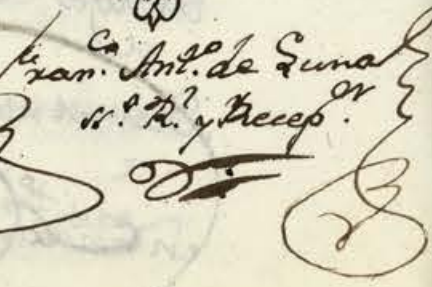 Fran.co Ant.o de Luna
SS.o R.l y Recep.or